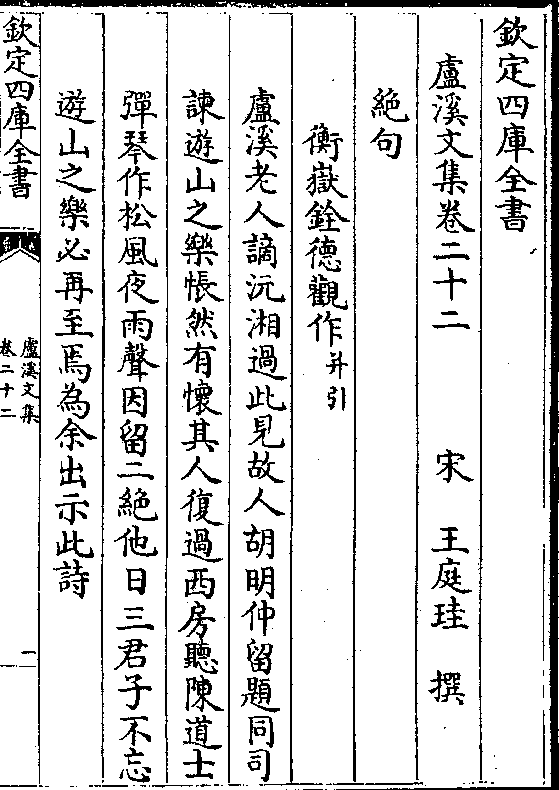 欽定四庫全書
盧溪文集卷二十二　宋　王庭珪　撰
絕句
衡嶽銓德觀作并引
盧溪老人謫沅湘過此見故人胡明仲留題同司
諫遊山之樂悵然有懷其人復過西房聽陳道士
彈琴作松風夜雨聲因留二絕他日三君子不忘
遊山之樂必再至焉為余出示此詩
欽定四庫全書
盧溪文集
卷二十二
一